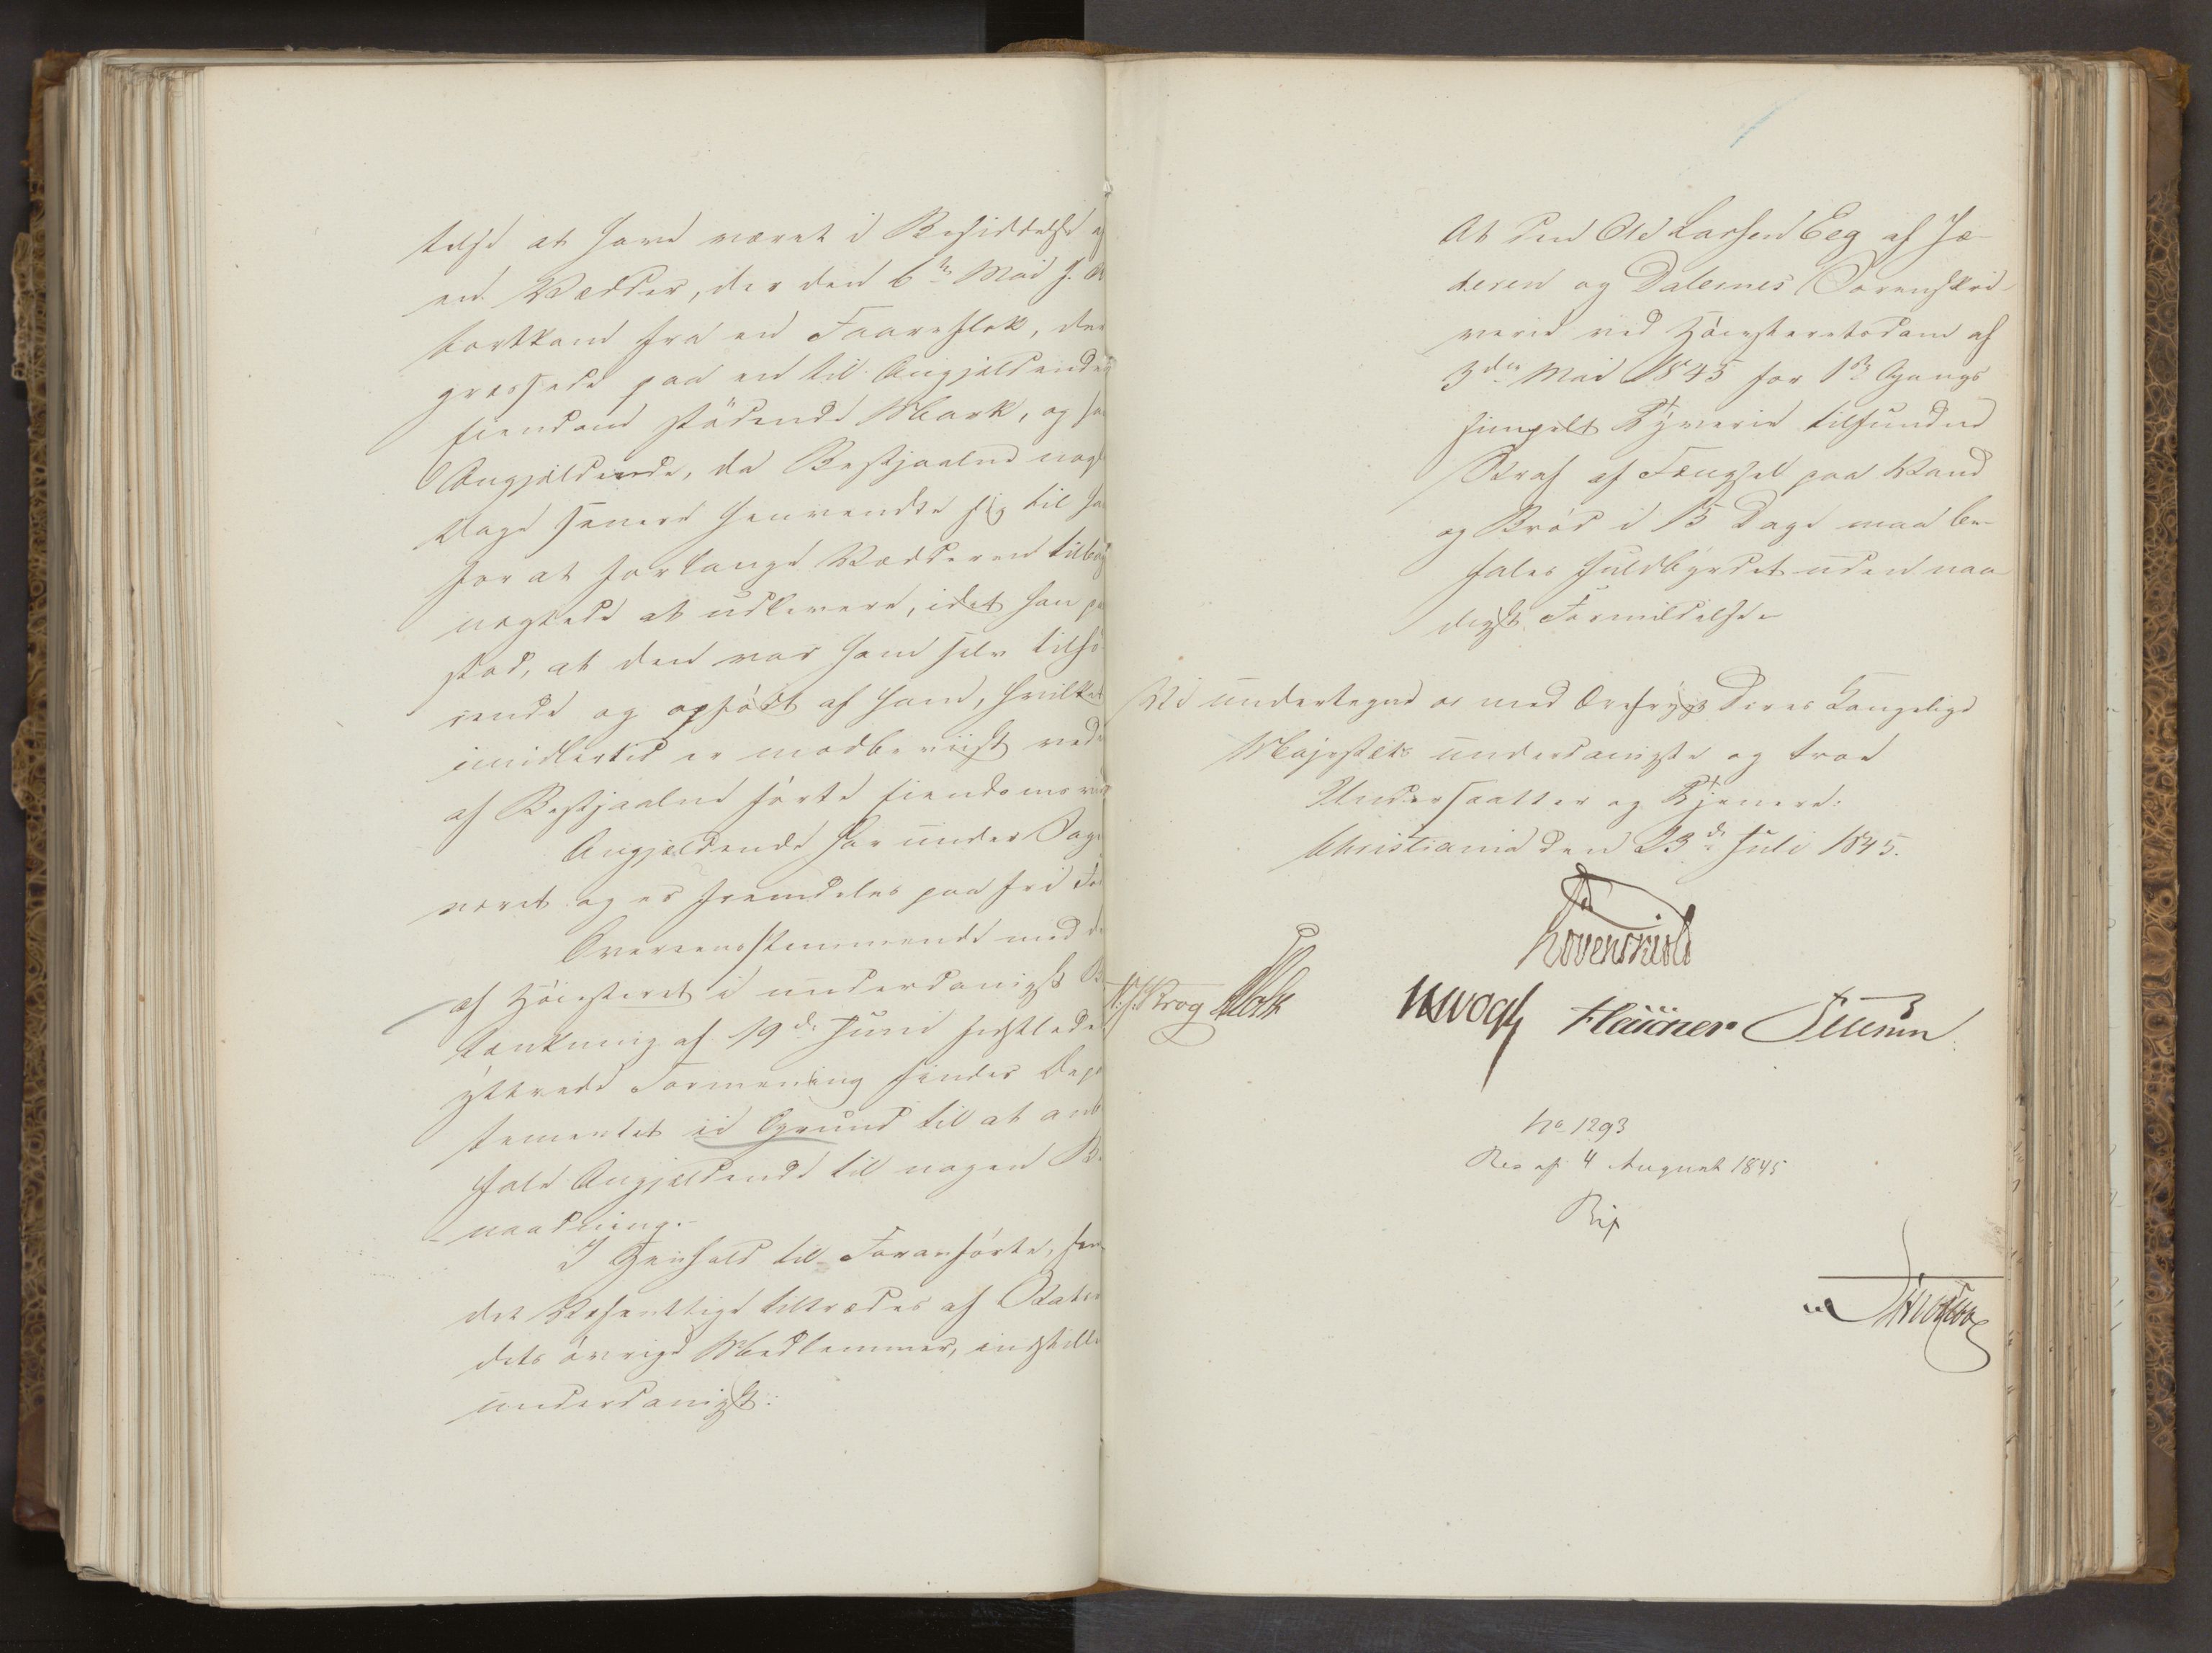 telse at have været i Besiddelse af
en Vædder, der den 6te Mai f. A.
bortkom fra en Faareflok, der
græssede paa en til Angjældendes
Eiendom stødende Mark, og som
Angjældende, da Bestjaalne nogle
Dage senere henvendte sig til ham
for at forlange Vædderen tilbage
nægtede at udlevere, idet han paa
stod, at den var ham selv tilhø
rende og opfødt af ham, hvilket
imidlertid er modbeviist ved
af Bestjaalne førte Eiendoms
Angjældende har under Sagen
været og er fremdeles paa fri Fod
Overeensstemmende med den
af Høiesteret i underdanigst Be
tænkning af 19de Juni sidstleden
yttrede Formening finder Depar
tementet ei Grund til at anbe
fale Angjældende til nogen Be
naadning.
I Henhold til Foranførte, som
det Væsentlige tiltrædes af Statsraa
dets øvrige Medlemmer, indstilles
underdanigst:
At den Ole Larsen Eeg af Jæ
deren og Dalernes Sorenskri
verie ved Høiesteretsdom af
3die Mai 1845 for 1ste Gangs
simpelt Tyverie tilfundne
Straf af Fængsel paa Vand
og Brød i 15 Dage maa be
fales fuldbyrdet uden naa
digst Formildelse
Vi undertegne os med Ærefrygt Deres Kongelige
Majestæts underdanigste og troe
Undersaatter og Tjenere:
Christiania den 23de Juli 1845.
Løvenskiold
Krog Vogt
No 1293
Res af 4 August 1845